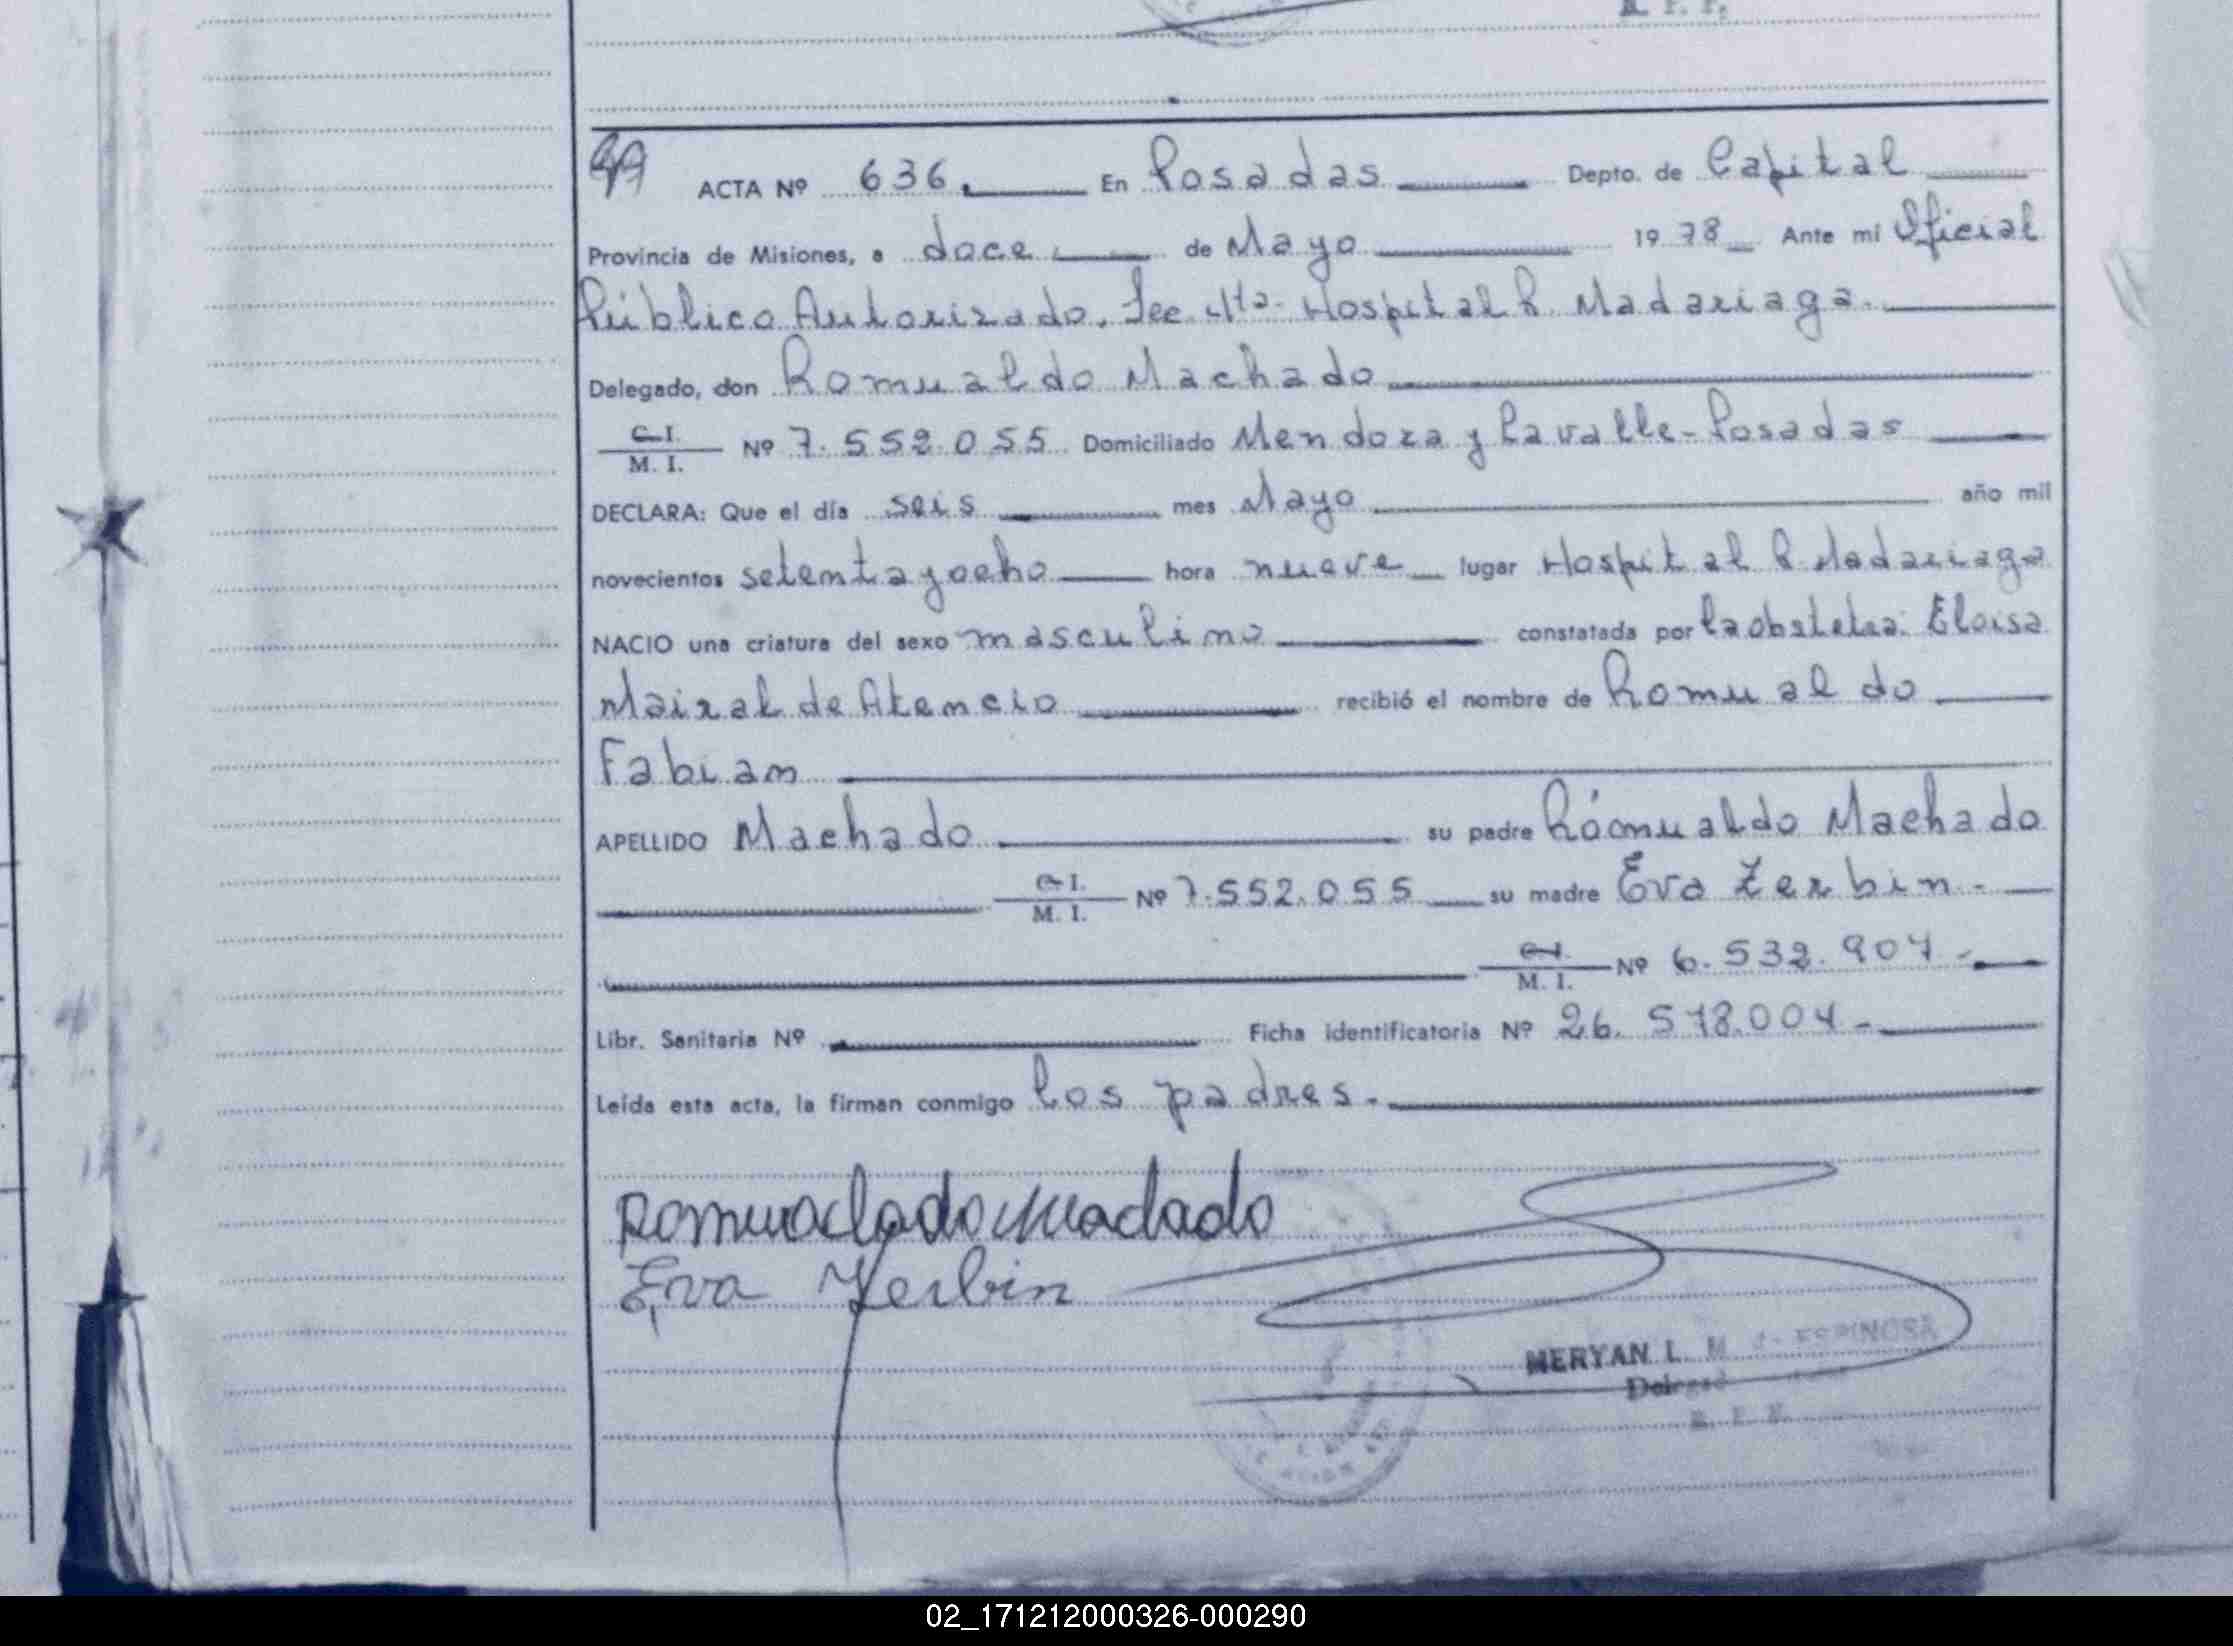 ACTA Nº 636. En Posadas Depto. de Capital
Provincia de Misiones, a doce de Mayo 1978 Ante mi Oficial
Público Autorizado. Sec 4ta. Hospital R. Madariaga.
Delegado, don Romualdo Machado
C.I. / M. I. Nº 7.552.055 Domiciliado Mendoza y Lavalle - Posadas
DECLARA: Que el día seis mes Mayo año mil
novecientos setenta y ocho hora nueve lugar Hospital R Madariaga
NACIO una criatura del sexo masculino constatada por la obstetra: Eloisa
Mairal de Atencio recibió el nombre de Romualdo
Fabian
APELLIDO Machado su padre Rómualdo Machado
C.I. / M. I. Nº 7.552.055 su madre Eva Zerbin.-
C.I. / M. I. Nº 6.532.904 -
Libr. Sanitaria Nº Ficha identificatoria Nº 26.578.004 -
Leída esta acta, la firman conmigo los padres.
Eva Zerbin
MERYAN L. M ESPINOSA
02_171212000326-000290